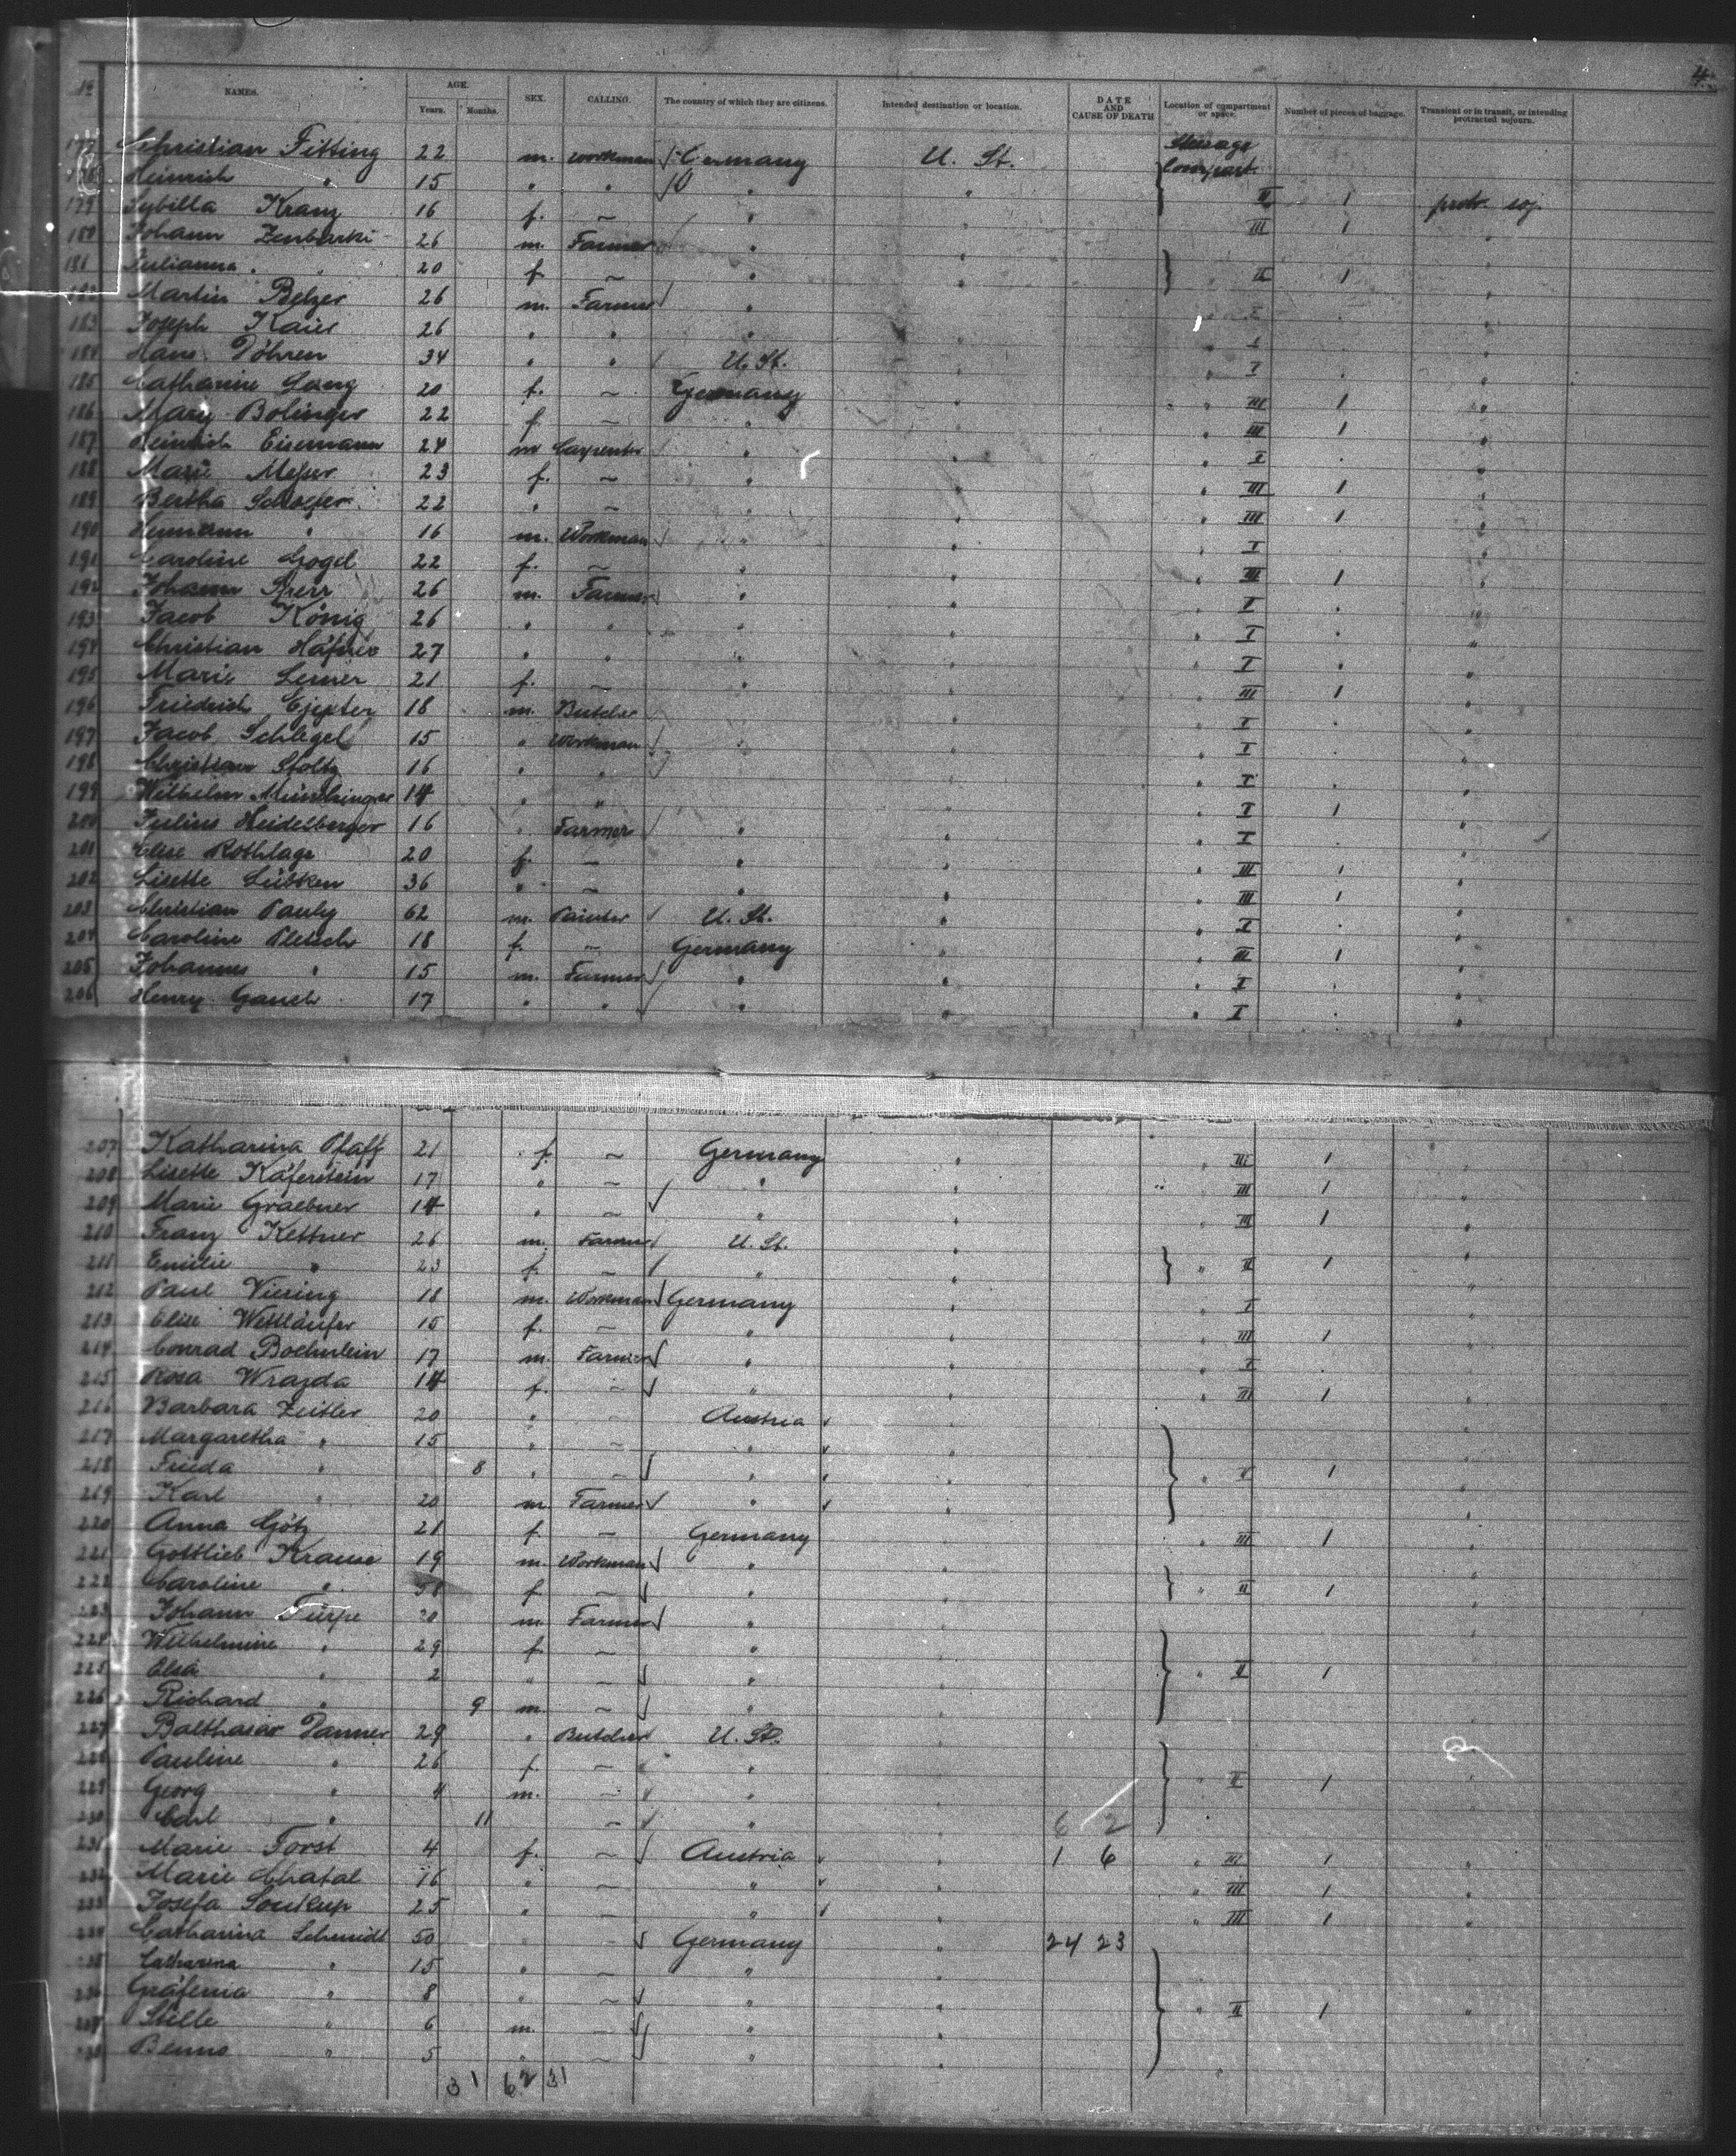 4.
No NAMES. AGE. Years. Months. SEX. CALLING. The country of which they are citizens. Intended destination or location. DATE AND CAUSE OF DEATH Location of compartment or space. Number of pieces of baggage. Transient or in transit, or intending protracted sojourn.
177 Christian Fitting 22 m. workman Germany U. St. Steerage
178 Heinrich " 15 " " " " Compart. II 1 prote. soj.
179 Sybilla Kranz 16 f. — " " III 1 "
180 Johann Zenbarski 26 m. Farmer " "
181 Julianna " 20 f. — " " II 1 "
182 Martin Belzer 26 m. Farmer " " I "
183 Joseph Kaier 26 " " " " I "
184 Hans Döhren 34 " " U. St. " I "
185 Catharine Lang 20 f. — Germany " III 1 "
186 Mary Bolinger 22 f — " " III 1 "
187 Heinrich Eisemann 24 m Carpenter " " I "
188 Marie Messer 23 f. — " " III 1 "
189 Bertha Schaefer 22 " — " " III 1 "
190 Hermann " 16 m. Workman " " I "
191 Caroline Gogel 22 f. — " " III 1 "
192 Johann Sperr 26 m. Farmer " " I "
193 Jacob König 26 " " " " I "
194 Christian Häfner 27 " " " " I "
195 Marie Lerner 21 f. — " " III 1 "
196 Friedrich 18 m. Butcher " " I "
197 Jacob Schlegel 15 " Workman " " I "
198 Christian Stoltz 16 " " " " I "
199 Wilhelm Münchinger 14 " " " " I 1 "
200 Julius Heidelberger 16 " Farmer " " I "
201 Elise Rothlage 20 f. — " " III 1 "
202 Lisette Lübken 36 " — " " III 1 "
203 Christian Pauly 62 m. Painter U. St. " I "
204 Caroline Pletsch 18 f. — Germany " III 1 "
205 Johannes " 15 m. Farmer " " I "
206 Henry Gauch 17 " " " " I "
207 Katharina Pfaff 21 f. — Germany " III 1 "
208 Lisette Käferstein 17 " — " " III 1 "
209 Marie Graebner 14 " — " " III 1 "
210 Franz Kettner 26 m. Farmer U. St. "
211 Emilie " 23 f. — " " II 1 "
212 Paul Viering 18 m. Workman Germany " I "
213 Elise Wettläufer 15 f. — " " III 1 "
214 Conrad Boehnlein 17 m. Farmer " " I "
215 Rosa Wrazda 14 f. — " " III 1 "
216 Barbara Zeitler 20 " — Austria "
217 Margaretha " 15 " — " "
218 Frieda " 8 " — " " II 1 "
219 Karl " 20 m. Farmer " "
220 Anna Götz 21 f. — Germany " III 1 "
221 Gottlieb Krause 19 m. Workman " "
222 Caroline " 58 f. — " " II 1 "
223 Johann Türpe 20 m. Farmer " "
224 Wilhelmine " 29 f. — " "
225 Elsa " 2 " — " " II 1 "
226 Richard " 9 m. — " "
227 Balthasar Danner 29 " Butcher U. St. "
228 Pauline " 26 f. — " "
229 Georg " 4 m. — " " II 1 "
230 Carl " 11 — " " 6/2
231 Marie Forst 4 f. — Austria " 1 6 III 1 "
232 Marie Chatal 16 " — " " III 1 "
233 Josefa Soukup 25 " — " " III 1 "
234 Catharina Schmidt 50 " — Germany " 24 23
235 Catharina " 15 " — " "
236 Gräfenia " 8 " — " "
237 Stelle " 6 m. — " " II 1 "
238 Benno " 5 " — " "
31 62 31